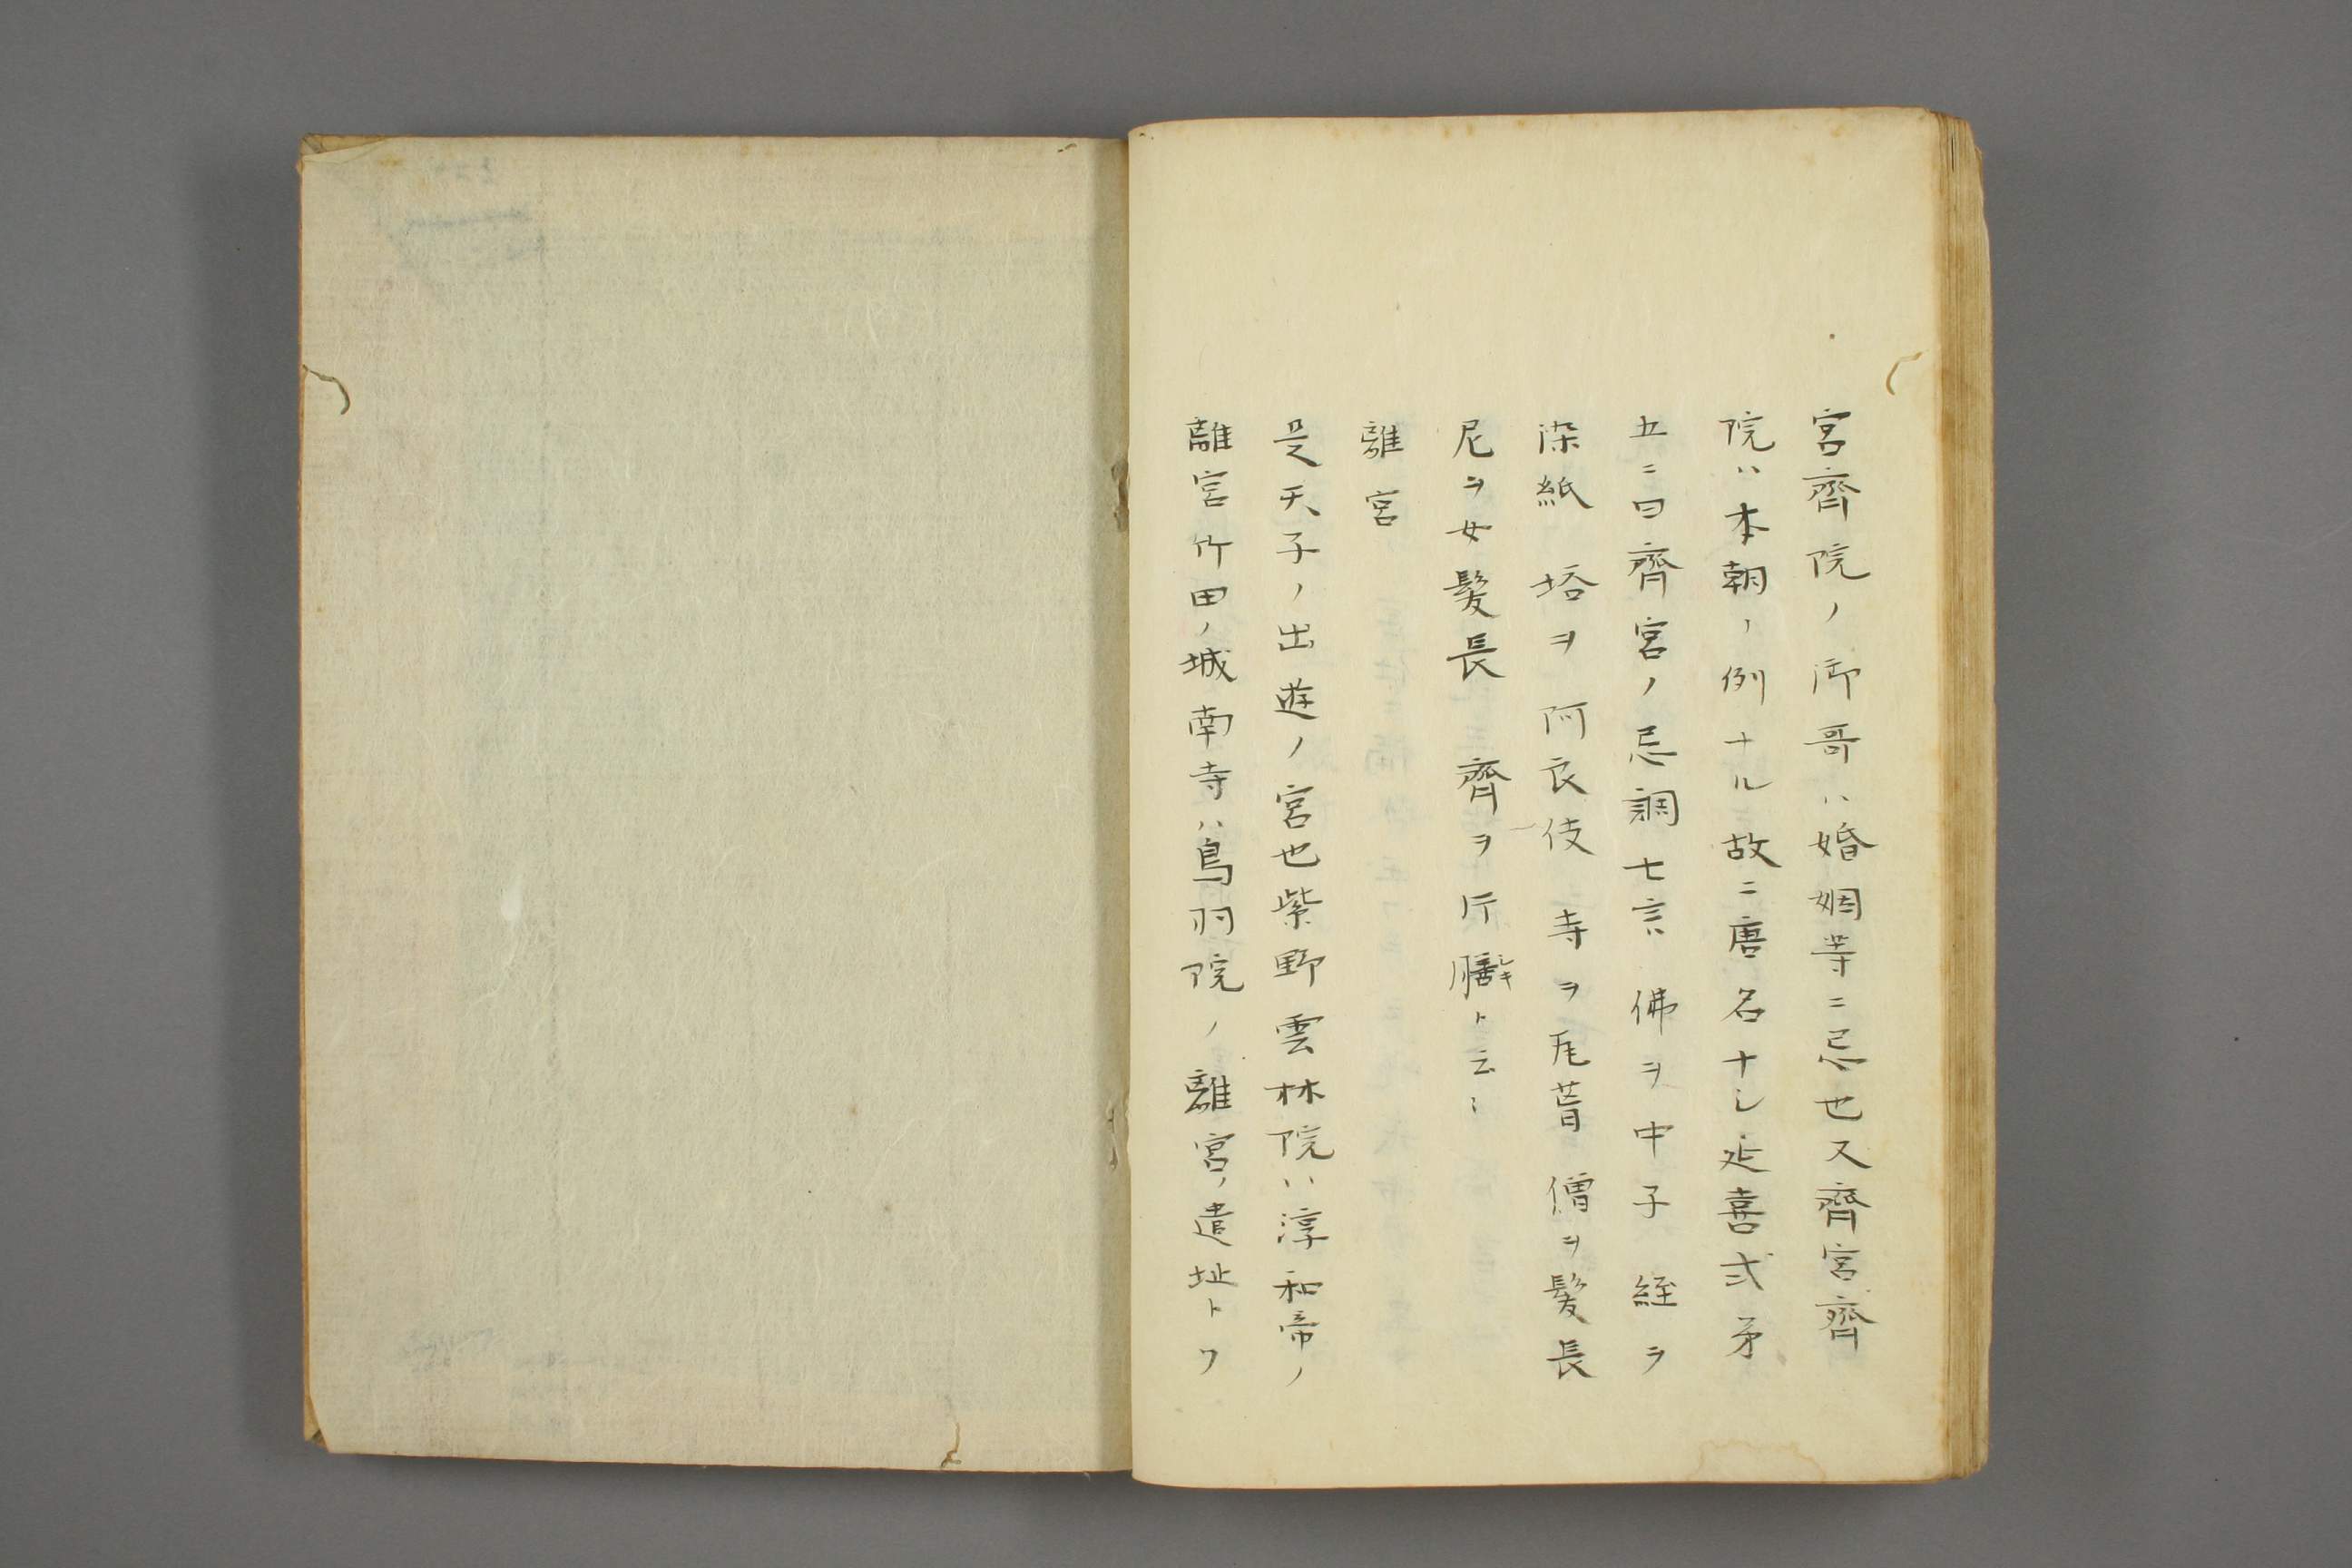 宮齊院ノ御哥ハ婚姻等ニ忌也又齊宮齊
院ハ本朝ノ例ナル故ニ唐名ナシ延喜式第
五ニ曰齊宮ノ忌詞七言ハ佛ヲ中子経ヲ
染紙塔ヲ阿良伎寺ヲ瓦葺僧ヲ髪長
尼ヲ女髪長齊ヲ片膳ト云〻
離宮
是天子ノ出遊ノ宮也紫野雲林院ハ淳和帝ノ
離宮竹田ノ城南寺ハ鳥羽院ノ離宮ノ遺址トフ